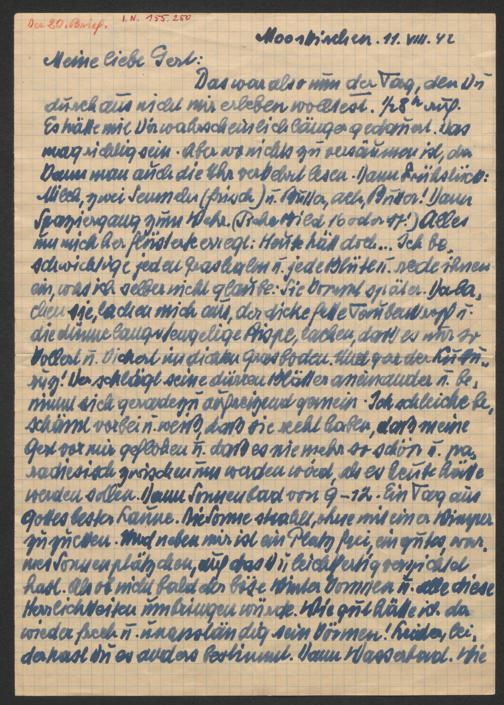 Der 20. Brief. I.N. 155.250
Mooskirchen. 11. VIII. 42
Meine liebe Gerl:
Das war also nun der Tag, den Du
durchaus nicht mir erleben wolltest. 1/2 8h auf.
Es hätte mit Dir wahrscheinlich länger gedauert. Das
mag richtig sein. Aber wo nichts zu versäumen ist, da
kann man auch die Uhr verkehrt lesen. Dann Frühstück:
Milch, zwei Semmeln (frisch) u. Butter, ach, Butter! Dann
Spaziergang zum Wehr. (Siehe Bild 16 oder 17!) Alles
um mich her flüsterte erregt: Heute hätt doch... Ich be-
schwichtige jeden Grashalm u. jede Blüte u. rede ihnen
ein, was ich selber nicht glaube: Sie kommt später. Da la-
chen sie, lachen mich aus, der dicke fette Taubenkropf u.
die dünne lange stengelige Rispe, lachen, dass es nur so
kollert u. kichert im dichten Grasboden. Und gar der Kuku-
ruz! Der schlägt seine dürren Blätter aneinander u. be-
nimmt sich geradezu aufreizend gemein. Ich schleiche be-
schämt vorbei u. weiß, daß sie recht haben, daß meine
Gerl vor mir geflohen u. daß es nie mehr so schön u. pa-
radiesisch zwischen uns werden wird, als es heute hätte
werden sollen. Dann Sonnenbad von 9-12. Ein Tag aus
Gottes bester Laune. Die Sonne strahlt, ohne mit einer Wimper
zu zucken. Und neben mir ist ein Platz frei, ein gutes, war-
mes Sonnenplätzchen, auf das Du leichtfertig verzichtet
hast. Als ob nicht bald der böse Winter kommen u. alle diese
Herrlichkeiten umbringen würde. Wie gut hätte ich da
wieder frech u. unanständig sein können! Leider, lei-
der hast Du es anders bestimmt. Dann Wasserbad. Wie